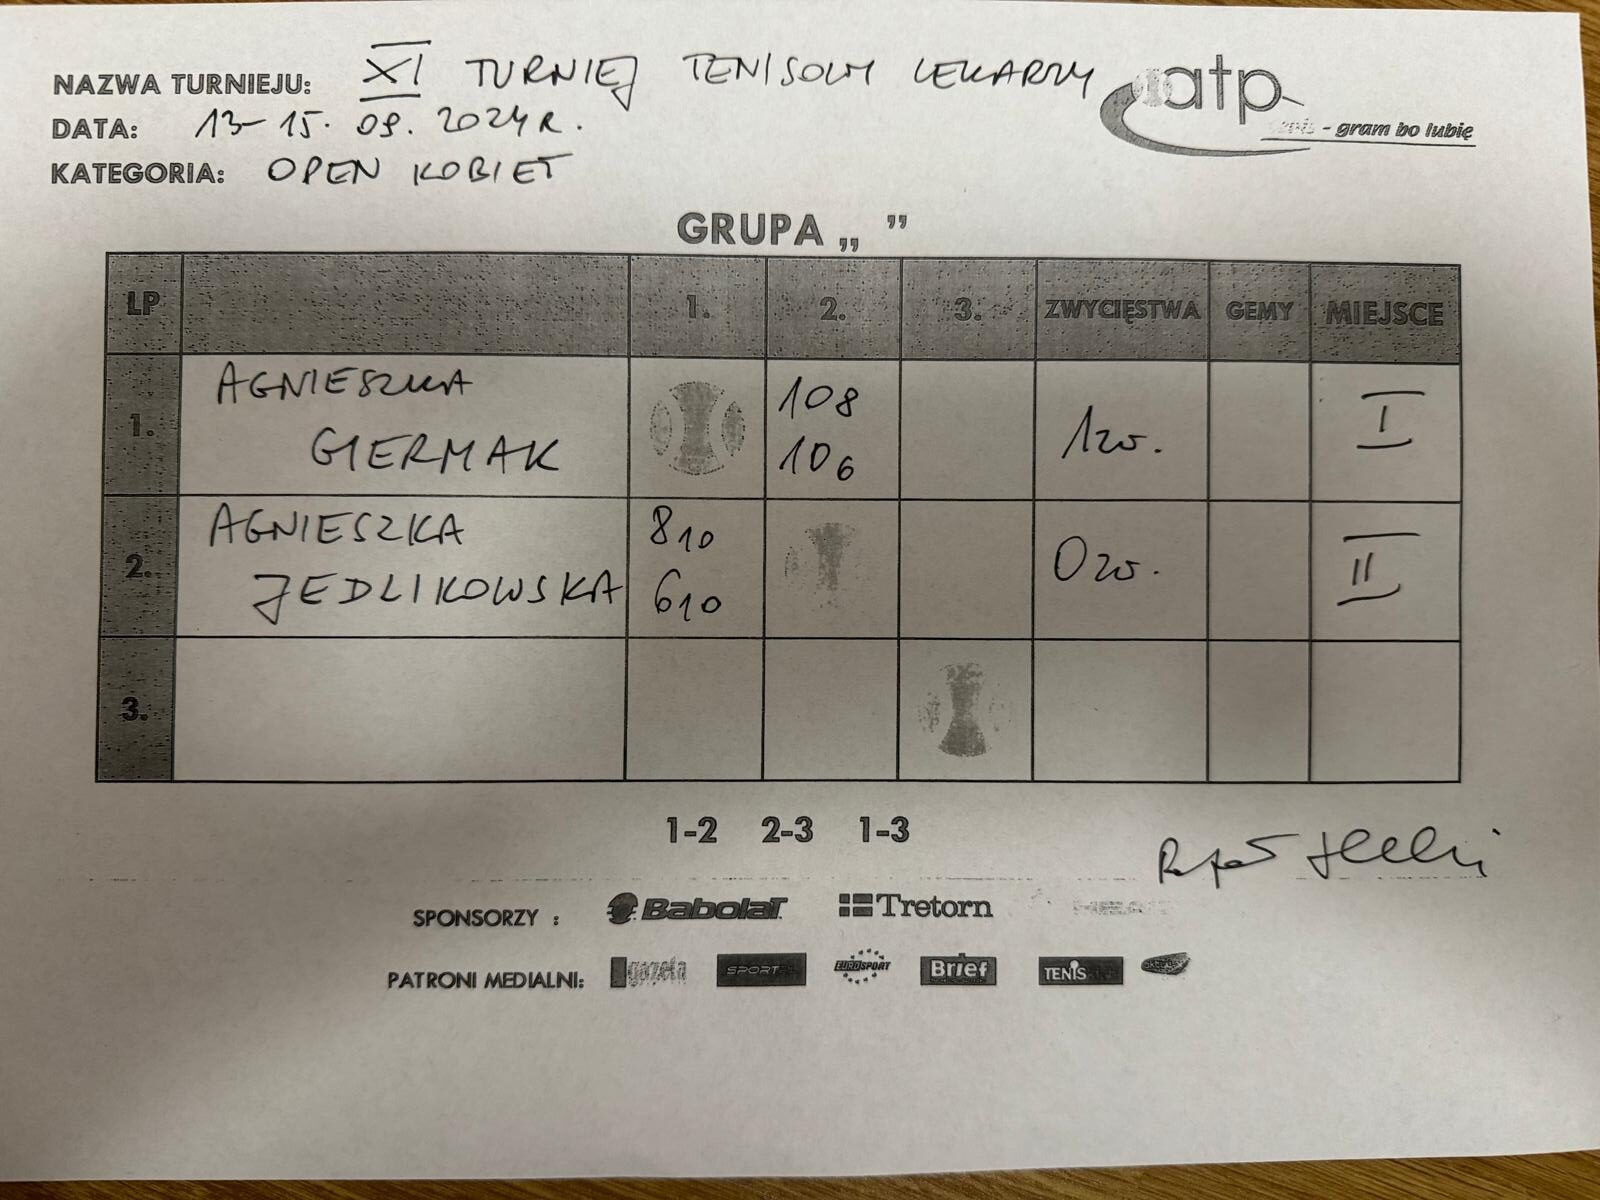 NAZWA TURNIEJU: XI TURNIEJ TENISOWY LEKARZY
atp
DATA: 13-15. 09. 2024 R.
- gram bo lubię
KATEGORIA: OPEN KOBIET
GRUPA „ ”
LP 1. 2. 3. ZWYCIĘSTWA GEMY MIEJSCE
1. AGNIESZKA GIERMAK 108 106 1 zw. I
2. AGNIESZKA JEDLIKOWSKA 810 610 0 zw. II
3.
1-2 2-3 1-3
SPONSORZY : Babolat Tretorn HEAD
PATRONI MEDIALNI: gazeta SPORT EUROSPORT Brief TENIS